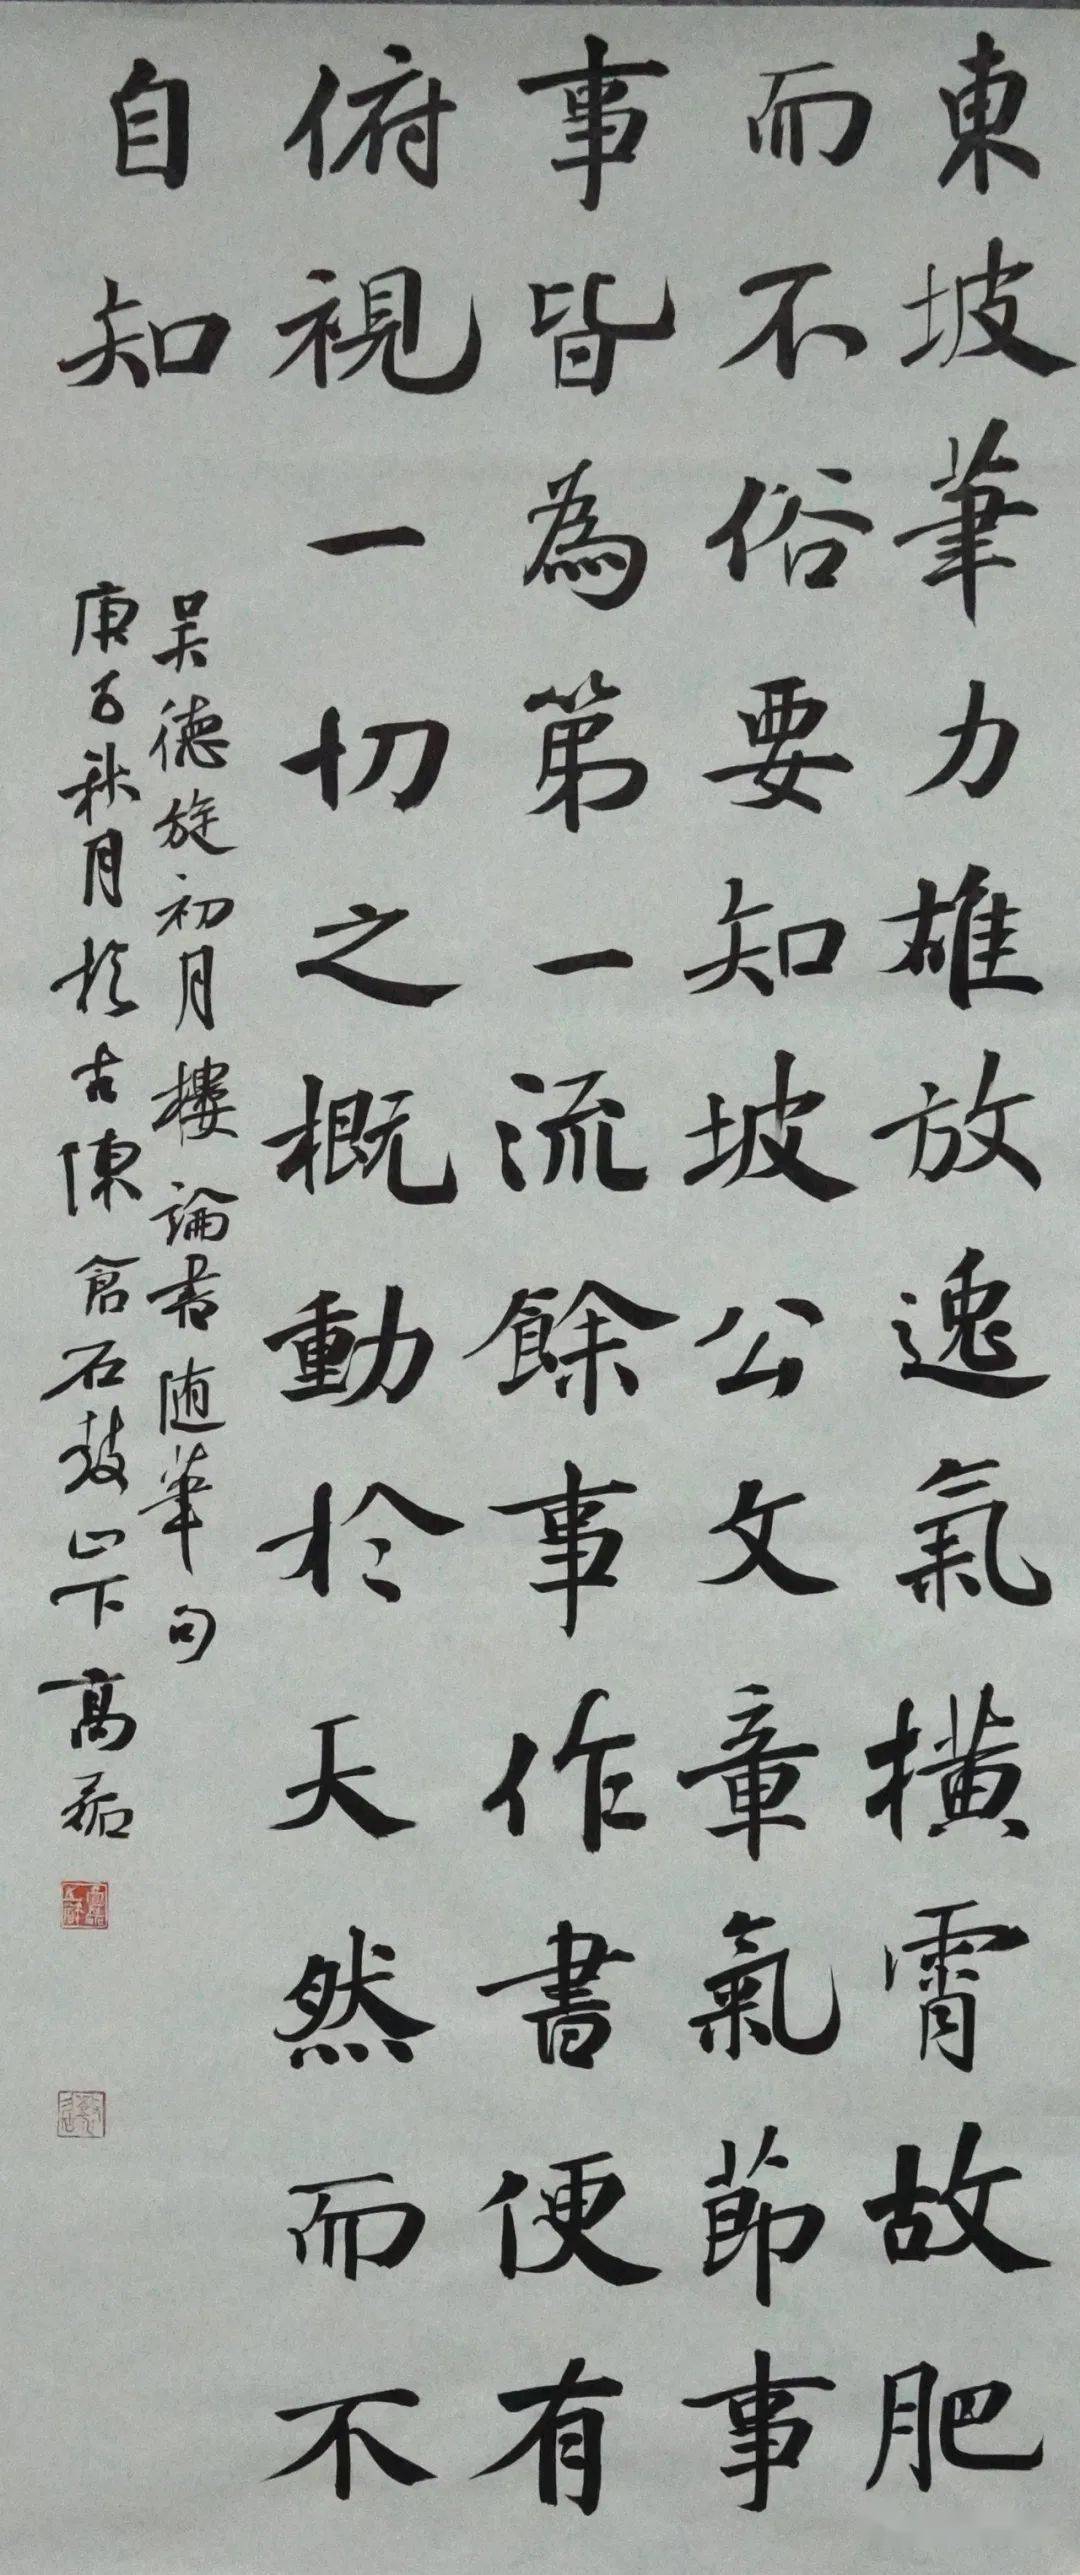 東坡筆力雄放逸氣橫霄故肥
而不俗要知坡公文章氣節事
事皆為第一流餘事作書便有
俯視一切之概動於天然而不
自知
吴德旋初月樓論書随筆句
庚子秋月於古陳倉石鼓山下高磊